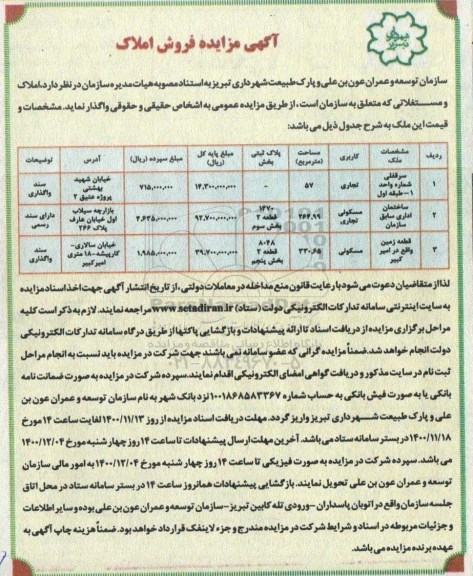 آگهی مزایده فروش املاک
سازمان توسعه و عمران عون بن علی و پارک طبیعت شهرداری تبریز به استناد مصوبه هیات مدیره سازمان در نظر دارد، املاک
و مستغلاتی که متعلق به سازمان است، از طریق مزایده عمومی به اشخاص حقیقی و حقوقی واگذار نماید. مشخصات و
قیمت این ملک به شرح جدول ذیل می باشد:
ردیف مشخصات ملک کاربری مساحت (مترمربع) پلاک ثبتی بخش مبلغ پایه کل (ریال) مبلغ سپرده (ریال) آدرس توضیحات
۱ سرقفلی شماره واحد ۱-طبقه اول تجاری ۵۷ - ۱۴,۳۰۰,۰۰۰,۰۰۰ ۷۱۵,۰۰۰,۰۰۰ خیابان شهید بهشتی پروژه عتیق ۲ سند واگذاری
۲ ساختمان اداری سابق سازمان مسکونی تجاری ۲۶۴,۹۹ ۱۴۷۰ قطعه ۲ بخش سوم ۹۲,۷۰۰,۰۰۰,۰۰۰ ۴,۶۳۵,۰۰۰,۰۰۰ بازارچه سیلاب اول خیابان عارف پلاک ۲۶۶ دارای سند رسمی
۳ قطعه زمین واقع در امیر کبیر مسکونی ۳۳۰,۶۵ ۸۰۴۸ قطعه ۲ بخش پنجم ۳۹,۷۰۰,۰۰۰,۰۰۰ ۱,۹۸۵,۰۰۰,۰۰۰ خیابان سالاری- کارپیشه-۱۸ متری امیرکبیر سند واگذاری
لذا از متقاضیان دعوت می شود با رعایت قانون منع مداخله در معاملات دولتی، از تاریخ انتشار آگهی جهت اخذ اسناد مزایده
به سایت اینترنتی سامانه تدارکات الکترونیکی دولت (ستاد) www.setadiran.ir مراجعه نمایند. لازم به ذکر است کلیه
مراحل برگزاری مزایده از دریافت اسناد تا ارائه پیشنهادات و بازگشایی پاکتها از طریق درگاه سامانه تدارکات الکترونیکی
دولت انجام خواهد شد. ضمناً مزایده گرانی که عضو سامانه نمی باشند جهت شرکت در مزایده باید نسبت به انجام مراحل
ثبت نام در سایت مذکور و دریافت گواهی امضای الکترونیکی اقدام نمایند. سپرده شرکت در مزایده به صورت ضمانت نامه
بانکی یا به صورت فیش بانکی به حساب شماره ۱۰۰۱۸۶۸۵۸۳۳۶۷ نزد بانک شهر به نام سازمان توسعه و عمران عون بن
علی و پارک طبیعت شهرداری تبریز واریز گردد. مهلت دریافت اسناد مزایده از روز ۱۴۰۰/۱۱/۱۳ لغایت ساعت ۱۴ مورخ
۱۴۰۰/۱۱/۱۸ در بستر سامانه ستاد می باشد. آخرین مهلت ارسال پیشنهادات تا ساعت ۱۴ روز چهارشنبه مورخ ۱۴۰۰/۱۲/۰۴
می باشد. سپرده شرکت در مزایده به صورت فیزیکی تا ساعت ۱۴ روز چهار شنبه مورخ ۱۴۰۰/۱۲/۰۴ به امور مالی سازمان
توسعه و عمران عون بن علی تحویل نمایند. بازگشایی پیشنهادات همانروز ساعت ۱۴ در بستر سامانه ستاد در محل اتاق
جلسه سازمان واقع در اتوبان پاسداران-ورودی تله کابین تبریز-سازمان توسعه و عمران عون بن علی بوده و سایر اطلاعات
و جزئیات مربوطه در اسناد و شرایط شرکت در مزایده مندرج و جزء لاینفک قرارداد خواهد بود. ضمناً هزینه چاپ آگهی به
عهده برنده مزایده می باشد.